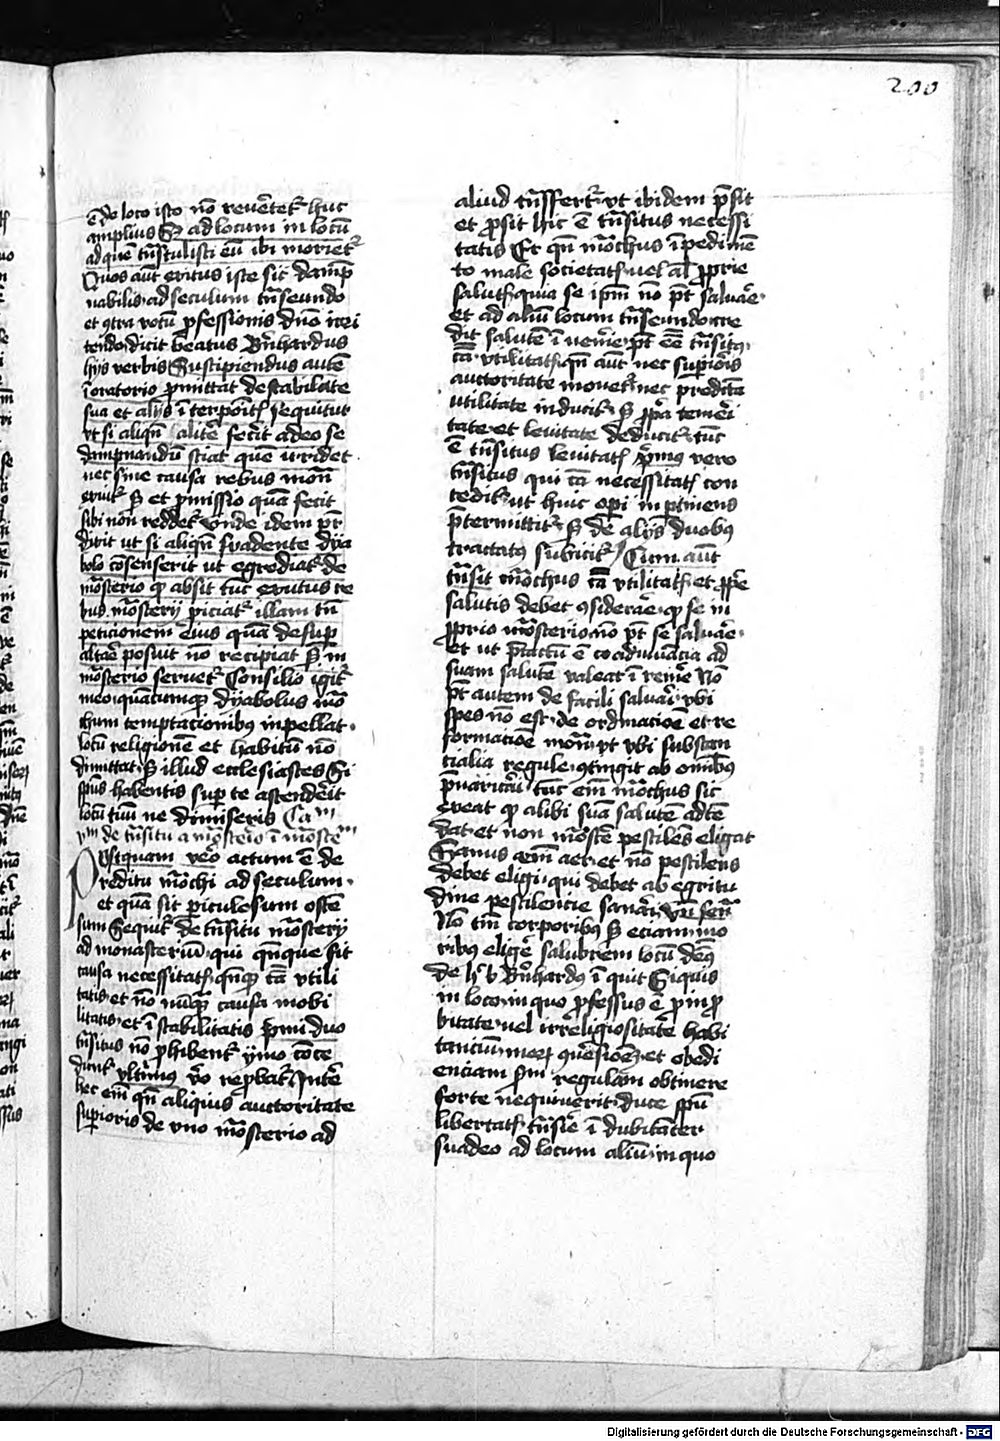 200
ē de loco isto nō reuētet᷑ huc
amplius S͛ ad locum in locū
ad quē tn̄stulisti eū ibi moriet᷑
Quos aūt exitus iste sit dāmp
nabilis ad seculum tn̄seundo
et ꝯtra votū ꝓfessionis
tendo dicit beatus Bn̄hardus
hijs verbis Sustipiendus autē
ī oratorio ꝓmittat de stabilitate
sua et alijs sequitur
vt si aliqn̄ alitē fecit adeo se
dampnandū sciat que irridet
nec sine causa rebus mon̄
exuit᷑ S͛ et ꝓmissio quā fecit
sibi non reddet᷑ Unde idem pr̄
dicit ut si aliqn̄ suadente dya
bolo cōsenserit ut egrediat᷑ de
mōsterio qͥ absit tūc exutus re
bus mōsterij piciat᷑ illam tn̄
peticionem eius quā desup
altare posuit nō recipiat S͛ in
mōsterio seruet᷑ Consilio igit᷑
meo quātumqꝫ dyabolus mō
chum temptacionibꝰ inpellat
locū religionē et habitū nō
dimittat S͛ illud ecclesiastes Si
spūs habentis sup te ascendeīt
locū tuū ne dimiseris Cam
vm de tn̄situ a mōsterio ī mōsteium
Postquam vēo actum ē de
reditu mōchi ad seculum
et quā sit piculosum ostē
sum Sequit᷑ de tn̄situ mōsterij
ad monasteriū qui qn̄que fit
causa necessitatꝭ qn̄qꝫ cā vtili
tatis et nō nūqꝫ causa mobi
litatis et ī stabilitatis pmi duo
tn̄situs nō ꝓhibent᷑ ymo cōce
dunt᷑ vltimus vō repbat᷑ Intē
hec em̄ qn̄ aliquis auctoritate
supioris de vno mōsterio ad
aliud tn̄sfert᷑ vt ibidem p̄sit
et ꝓsit hic ē tn̄situs necessi
tatis Et qn̄ mōchus īpedimē
to male societatꝭ vel al ꝓprie
salutꝭ quia se ipm̄ nō pt̄ saluāe
et ad aliū locum tn̄seundo cre
dit salutē ī venīe pt̄ eē tn̄sitꝰ
cā vtilitatꝭ qn̄ aūt nec supioīs
auctoritate mouet᷑ nec p̄dicta
utilitate inducit᷑ S͛ ꝓpa temēi
tate et leuitate deducit᷑ tūc
ē tn̄situs leuitatꝭ p̄mꝰ vero
tn̄situs qui cā necessitatꝭ con
cedit᷑ ut huic opi in ptinens
p̄termittit᷑ S͛ de alijs duobꝰ
tractatꝰ subicit᷑ Cum aūt
tn̄sit mōchus cā vtilitatꝭ et ꝓpe
salutis debet ꝯsiderāe qͥ se in
ꝓprio mōsterio nō pt̄ se saluāe
et ut ptactū ē coadunacia ad
suam salutē valeat ī venīe Nō
pt̄ autem de facili saluāi vbi
spes nō est de ordinacioē et re
formacioē mon̄ pt vbi substan
cialia regule ꝯtingit ab omībꝰ
p̄uaricāi tūc em̄ mōchus sic
exeat qͥ alibi suā salutē adtē
dat et non mōstē pestilēs eligat
Sanus em̄ aer et nō pestilens
debet eligi qui debet ab egritu
dine pestilencie sanāi
Nō tm̄ corporibus S͛ eciam mo
ribꝰ eligē salubrem locū
de h b Bn̄hardꝰ ī quit Siquis
in loco in quo ꝓfessus ē ꝓ inꝓ
bitate vel irreligiositatē habi
tanciū moꝝ qͥesioēꝫ et obedi
enciam sm̄ regulam obtinere
forte nequiuerit duce spū
libertatꝭ tn̄sīe ī dubitāter
suadeo ad locum aliū in quo
Digitalisierung gefördert durch die Deutsche Forschungsgemeinschaft - DFG